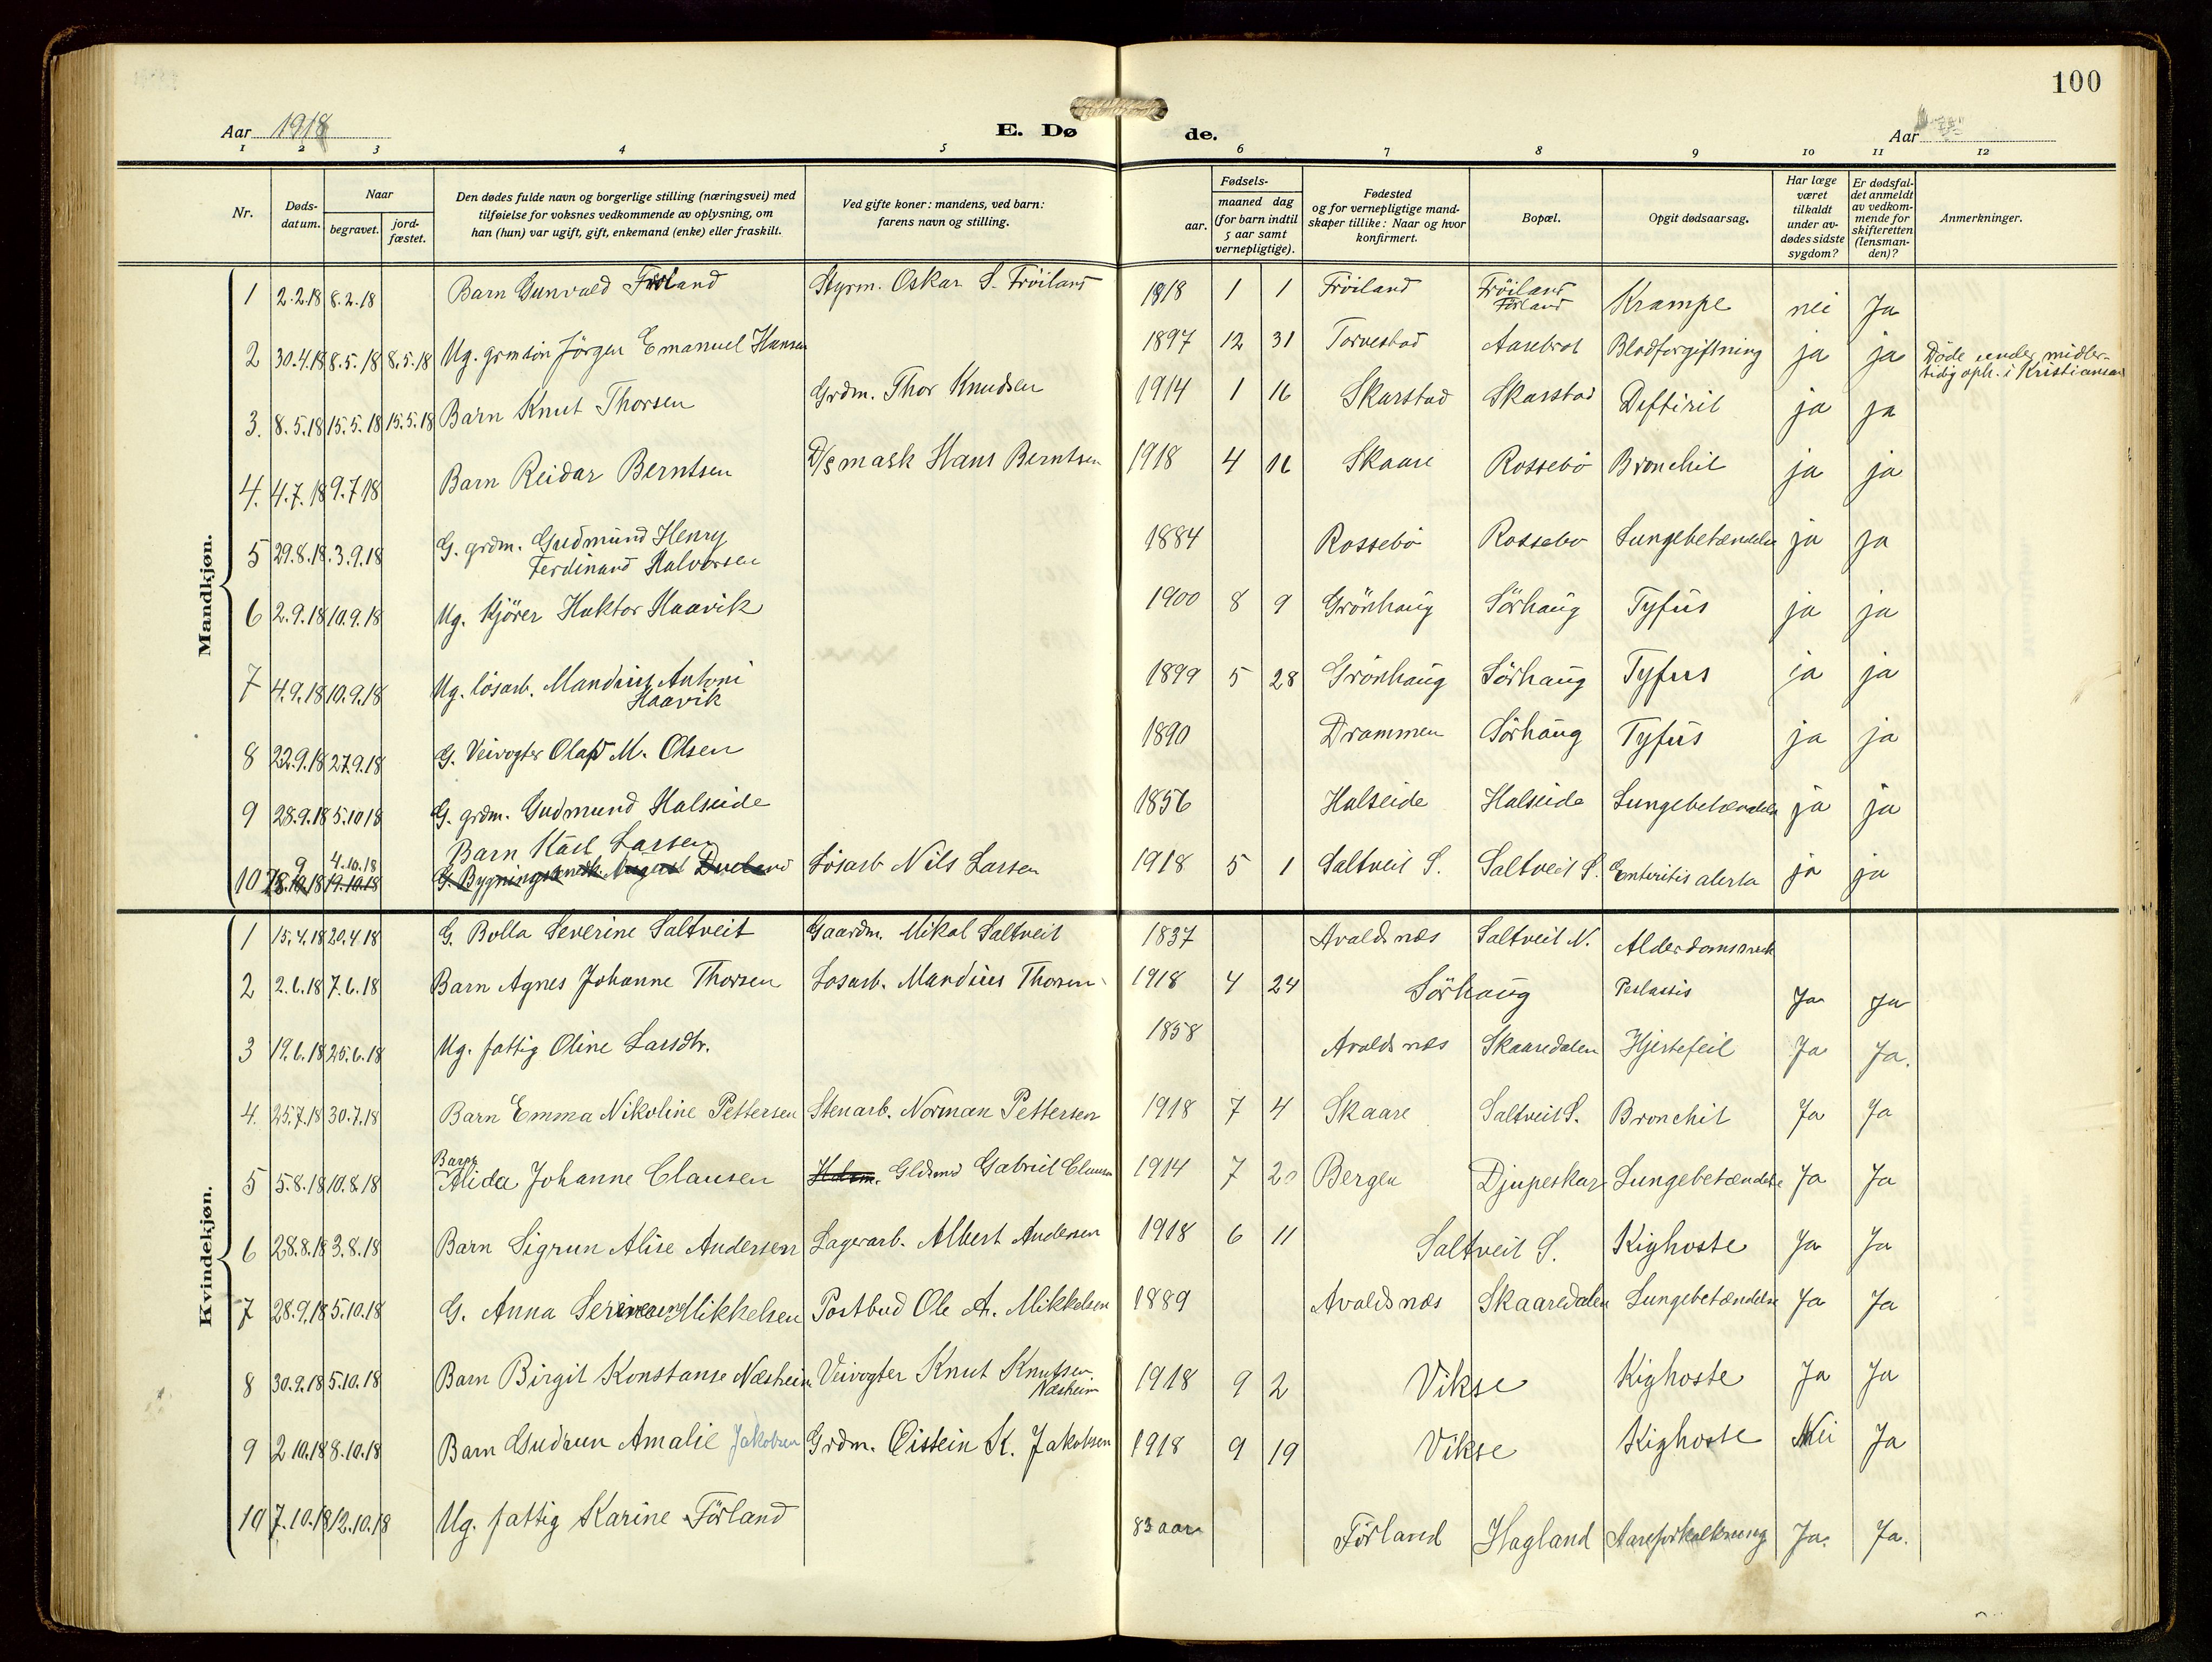 100
Aar 1918
E. Dø
de.
Aar
1 2 3 4 5 6 7 8 9 10 11 12
Nr.
Døds-datum.
Naar
begravet.
jord-fæstet.
Den dødes fulde navn og borgerlige stilling (næringsvei) med
tilføielse for voksnes vedkommende av oplysning, om
han (hun) var ugift, gift, enkemand (enke) eller fraskilt.
Ved gifte koner: mandens, ved barn:
farens navn og stilling.
Fødsels-
aar.
maaned dag
(for barn indtil
5 aar samt
vernepligtige).
Fødested
og for vernepligtige mand-
skaper tillike: Naar og hvor
konfirmert.
Bopæl.
Opgit dødsaarsag.
Har læge
været
tilkaldt
under av-
dødes sidste
sygdom?
Er dødsfal-
det anmeldt
av vedkom-
mende for
skifteretten
(lensman-
den)?
Anmerkninger.
Mandkjøn.
1 2.2.18 8.2.18 Barn Gunvald Förland Styrm. Oskar S. Fröiland 1918 1 1 Fröiland Fröiland Förland Krampe nei Ja
2 30.4.18 8.5.18 8.5.18 Ug. grmsön Jörgen Emanuel Hansen 1897 12 31 Torvestad Aasebrot Blodforgiftning ja ja Döde under midler-
tidig oph. i Kristiansand
3. 8.5.18 15.5.18 15.5.18 Barn Knut Thorsen Grdm. Thor Knudsen 1914 1 16 Skarstad Skarstad Deftirit ja ja
4. 4.7.18 9.7.18 Barn Reidar Berntsen D/s mask Hans Berntsen 1918 4 16 Skaare Rossebö Bronchit ja ja
5 29.8.18 3.9.18 G. grdm. Gudmund Henry
Ferdinand Halvorsen 1884 Rossebö Rossebö Lungebetændelse ja ja
6 2.9.18 10.9.18 Ug. Kjörer Haktor Haavik 1900 8 9 Grönhaug Sörhaug Tyfus ja ja
7 4.9.18 10.9.18 Ug. lösarb. Mandius Antoni
Haavik 1899 5 28 Grönhaug Sörhaug Tyfus ja ja
8 22.9.18 27.9.18 G. Veivogter Olaf M. Olsen 1890 Drammen Sörhaug Tyfus ja ja
9 28.9.18 5.10.18 G. grdm. Gudmund Halseide 1856 Halseide Halseide Lungebetændelse ja ja
4.10.18 Barn Karl Larsen
10 19.10.18 Lösarb Nils Larsen 1918 5 1 Saltveit S. Saltveit S. Enteritis ja ja
Kvindekjøn.
1 15.4.18 20.4.18 G. Bolla Severine Saltveit Gaardm. Mikal Saltveit 1837 Avaldsnæs Saltveit N. Alderdomssvak
2 2.6.18 7.6.18 Barn Agnes Johanne Thorsen Losarb. Mandius Thorsen 1918 4 24 Sörhaug Ja Ja
3 19.6.18 25.6.18 Ug. fattig Oline Larsdtr. 1858 Avaldsnæs Skaaredalen Hjertefeil Ja Ja.
4. 25.7.18 30.7.18 Barn Emma Nikoline Pettersen Stenarb. Norman Pettersen 1918 7 4 Skaare Saltveit S. Bronchit Ja Ja
5 5.8.18 10.8.18 Barn Alida Johanne Clausen Gldsmd Gabriel Clausen 1914 7 20 Bergen Djupeskar Lungebetændelse Ja Ja
6 28.8.18 3.8.18 Barn Sigrun Alise Andersen Lagerarb. Albert Andersen 1918 6 11 Saltveit S. Kighoste Ja Ja
7 28.9.18 5.10.18 G. Anna Mikkelsen Postbud Ole A. Mikkelsen 1889 Avaldsnæs Skaaredalen Lungebetændelse Ja Ja
8 30.9.18 5.10.18 Barn Birgit Konstanse Næsheim Veivogter Knut Knutsen
Næsheim 1918 9 2 Vikse Kighoste Ja Ja
9 2.10.18 8.10.18 Barn Gudrun Amalie Jakobsen Grdm. Oistein K. Jakobsen 1918 9 19 Vikse Kighoste Nei Ja
10 7.10.18 12.10.18 Ug. fattig Karine Förland 83 aar Förland Hagland Aareforkalkning Ja. Ja.